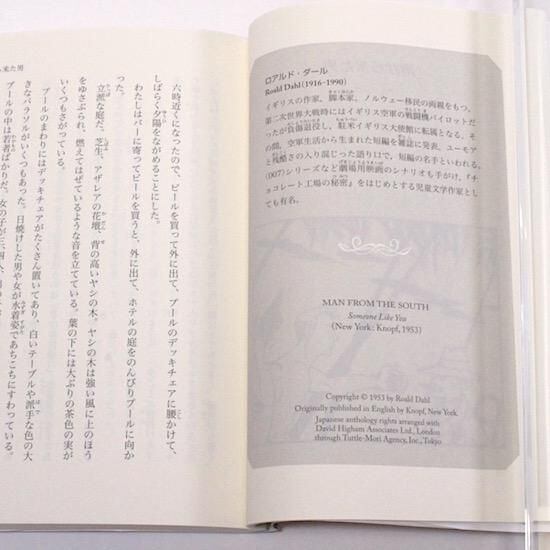 ロアルド・ダール
Roald Dahl (1916-1990)
イギリスの作家、脚本家。ノルウェー移民の両親をもつ。
第二次世界大戦時にはイギリス空軍の戦闘機パイロットだ
ったが負傷退役し、駐米イギリス大使館に転属となる。そ
の間、空軍生活から生まれた短編を雑誌に発表。ユーモア
と残酷さの入り混じった語り口で、短編の名手といわれる。
《007》シリーズなど劇場用映画のシナリオも手がけ、『チ
ョコレート工場の秘密』をはじめとする児童文学作家とし
ても有名。
MAN FROM THE SOUTH
Someone Like You
(New York: Knopf, 1953)
Copyright © 1953 by Roald Dahl
Originally published in English by Knopf, New York.
Japanese anthology rights arranged with
David Higham Associates Ltd., London
through Tuttle-Mori Agency, Inc., Tokyo
ら来た男
六時近くになったので、ビールを買って外に出て、プールのデッキチェアに腰かけて、
しばらく夕陽をながめることにした。
わたしはバーに寄ってビールを買うと、外に出て、ホテルの庭をのんびりプールに向か
った。
立派な庭だ。芝生、アザレアの花壇、背の高いヤシの木。ヤシの木は強い風に上のほう
をゆさぶられ、燃えてはぜているような音を立てている。葉の下には大ぶりの茶色の実が
いくつもさがっている。
プールのまわりにはデッキチェアがたくさん置いてあり、白いテーブルや派手な色の大
きなパラソルがいくつもあった。日焼けした男や女が水着姿であちこちにすわっている。
プールの中は若者ばかりだ。女の子が三、四人、